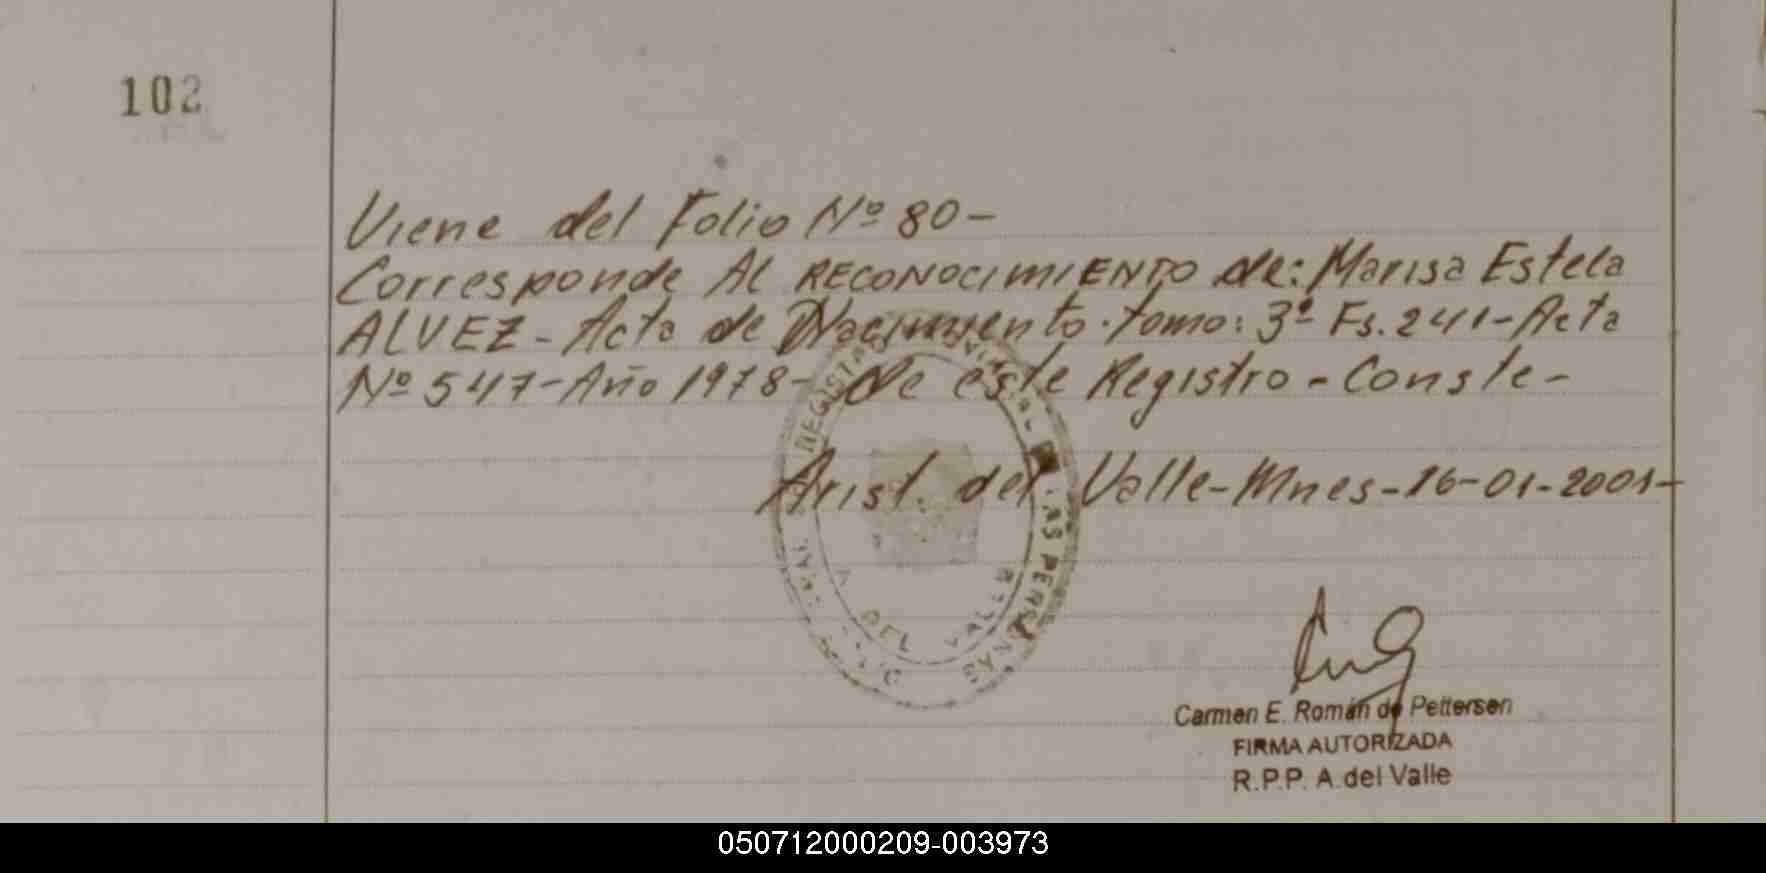 102
Viene del Folio Nº 80-
Corresponde Al RECONOCIMIENTO de: Marisa Estela
ALVEZ - Acta de Nacimiento. tomo: 3º Fs. 241 - Acta
Nº 547 - Año 1978 - de este Registro - Conste -
Arist. del Valle - Mnes - 16-01-2001 -
DEL VALLE
LAS PERSONAS
Carmen E. Román de Pettersen
FIRMA AUTORIZADA
R.P.P. A. del Valle
050712000209-003973